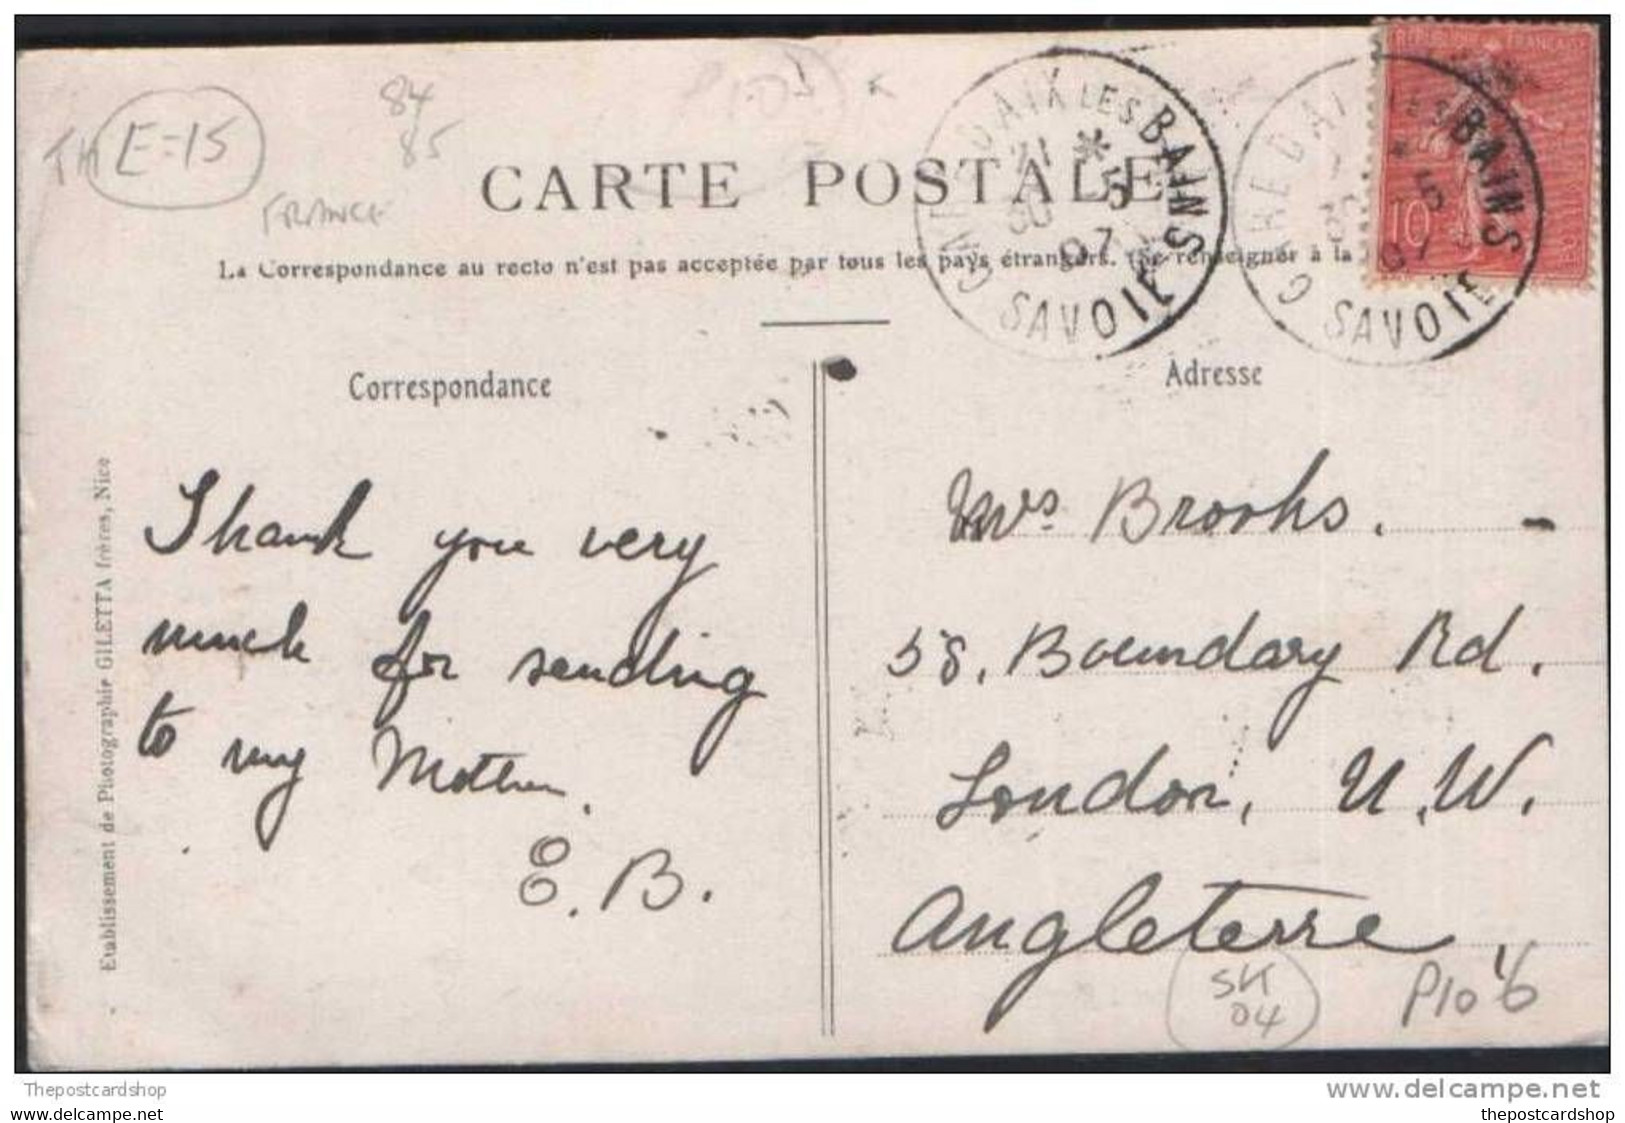 E=15
84
85
FRANCE
CARTE POSTALE
La Correspondance au recto n'est pas acceptée par tous les pays étrangers. (Se renseigner à la
AIX LES BAINS
SAVOIE
5
07
LES BAINS
SAVOIE
5
07
10
Correspondance
Adresse
Thank you very
much for sending
to my Mother.
E. B.
Mrs Brooks.
58. Boundary Rd.
London, N.W.
Angleterre.
SK
04
Etablissement de Photographie GILETTA frères, Nice
Thepostcardshop
www.delcampe.net
thepostcardshop
thepostcardshop